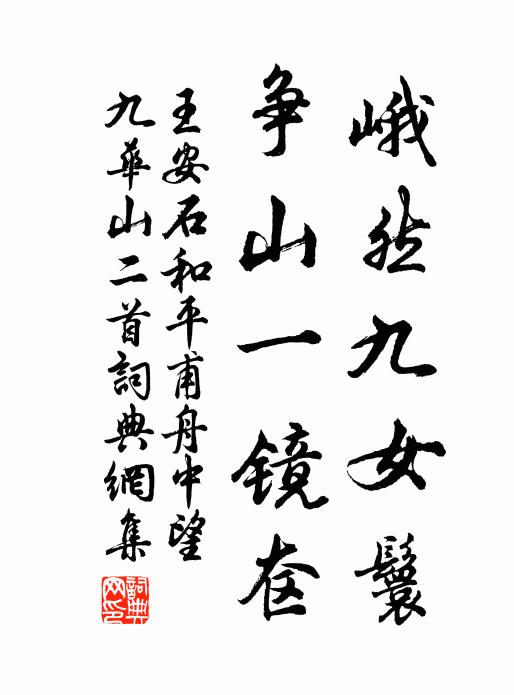 峨然九女鬟
争山一镜奁
王安石和平甫舟中望
九華山二首詞典網集
詞典
网印